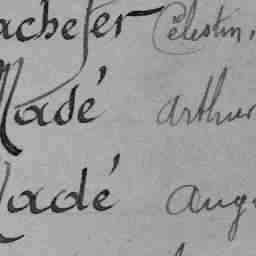 acheter Célestin,
Madé Arthur
Madé Aug